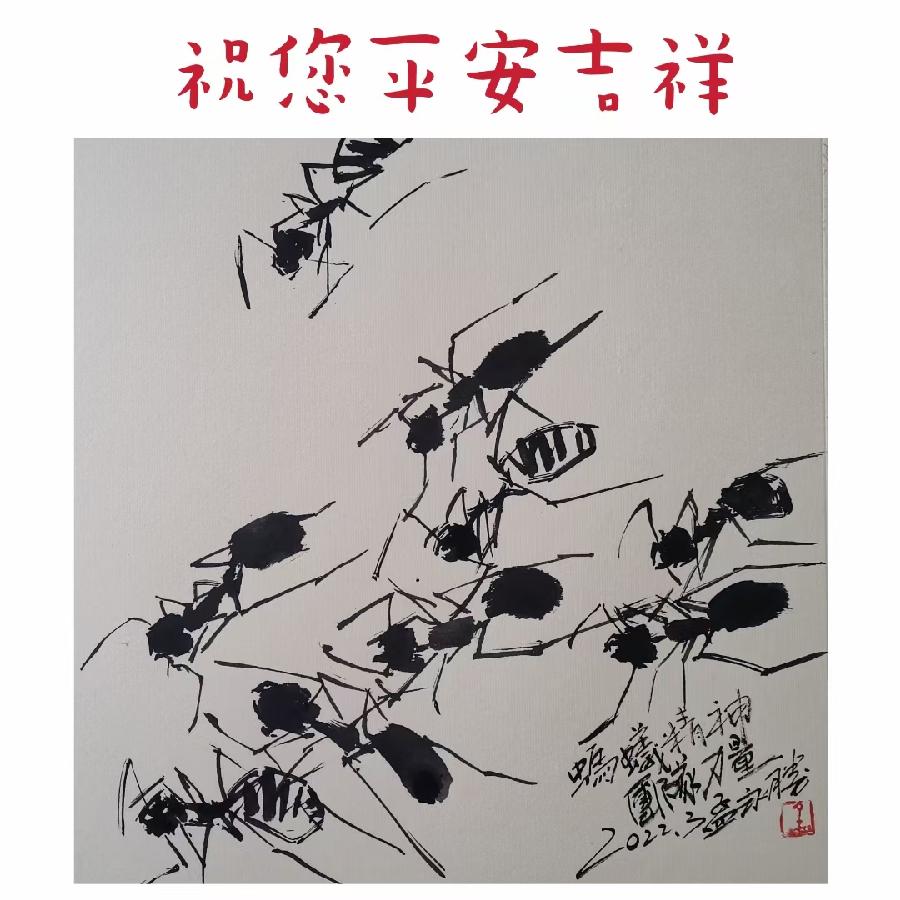 祝您平安吉祥
螞蟻精神
團隊力量
2022.3